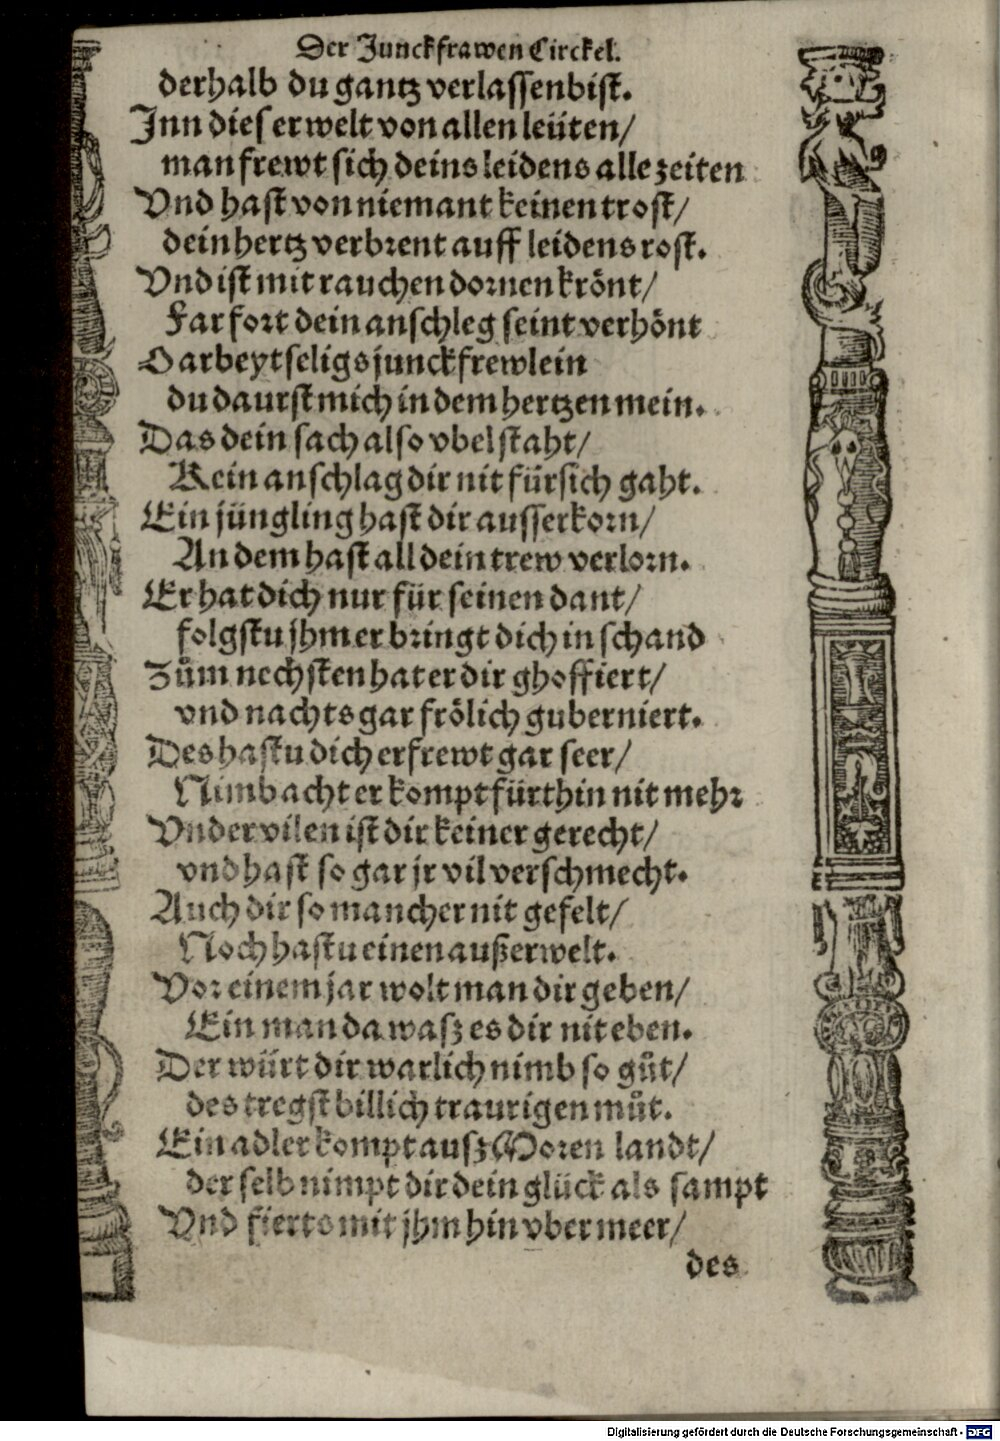 Der Junckfrawen Circkel.
derhalb du gantz verlassen bist.
Inn dieser welt von allen leüten/
man frewt sich deins leidens alle zeiten
Vnd hast von niemant keinen trost/
dein hertz verbrent auff leidens rost.
Vnd ist mit rauchen dornen krönt/
Far fort dein anschleg seint verhönt
O arbeytseligs junckfrewlein
du daurst mich in dem hertzen mein.
Das dein sach also vbel staht/
Kein anschlag dir nit fürsich gaht.
Ein jüngling hast dir ausserkorn/
An dem hast all dein trew verlorn.
Er hat dich nur für seinen dant/
folgstu jhm er bringt dich in schand
Zům nechsten hat er dir ghoffiert/
vnd nachts gar frölich guberniert.
Des hastu dich erfrewt gar seer/
Nimb acht er kompt fürthin nit mehr
Vnder vilen ist dir keiner gerecht/
vnd hast so gar jr vil verschmecht.
Auch dir so mancher nit gefelt/
Noch hastu einen außerwelt.
Vor einem jar wolt man dir geben/
Ein man da wasz es dir nit eben.
Der würt dir warlich nimb so gůt/
des tregst billich traurigen můt.
Ein adler kompt ausz Moren landt/
der selb nimpt dir dein glück als sampt
Vnd fierts mit jhm hin vber meer/
des
Digitalisierung gefördert durch die Deutsche Forschungsgemeinschaft - DFG